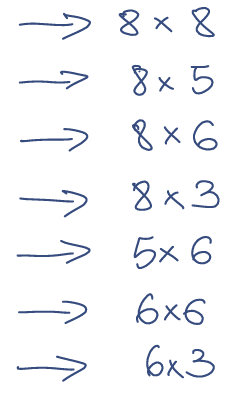 → 8 × 8
→ 8 × 5
→ 8 × 6
→ 8 × 3
→ 5 × 6
→ 6 × 6
→ 6 × 3